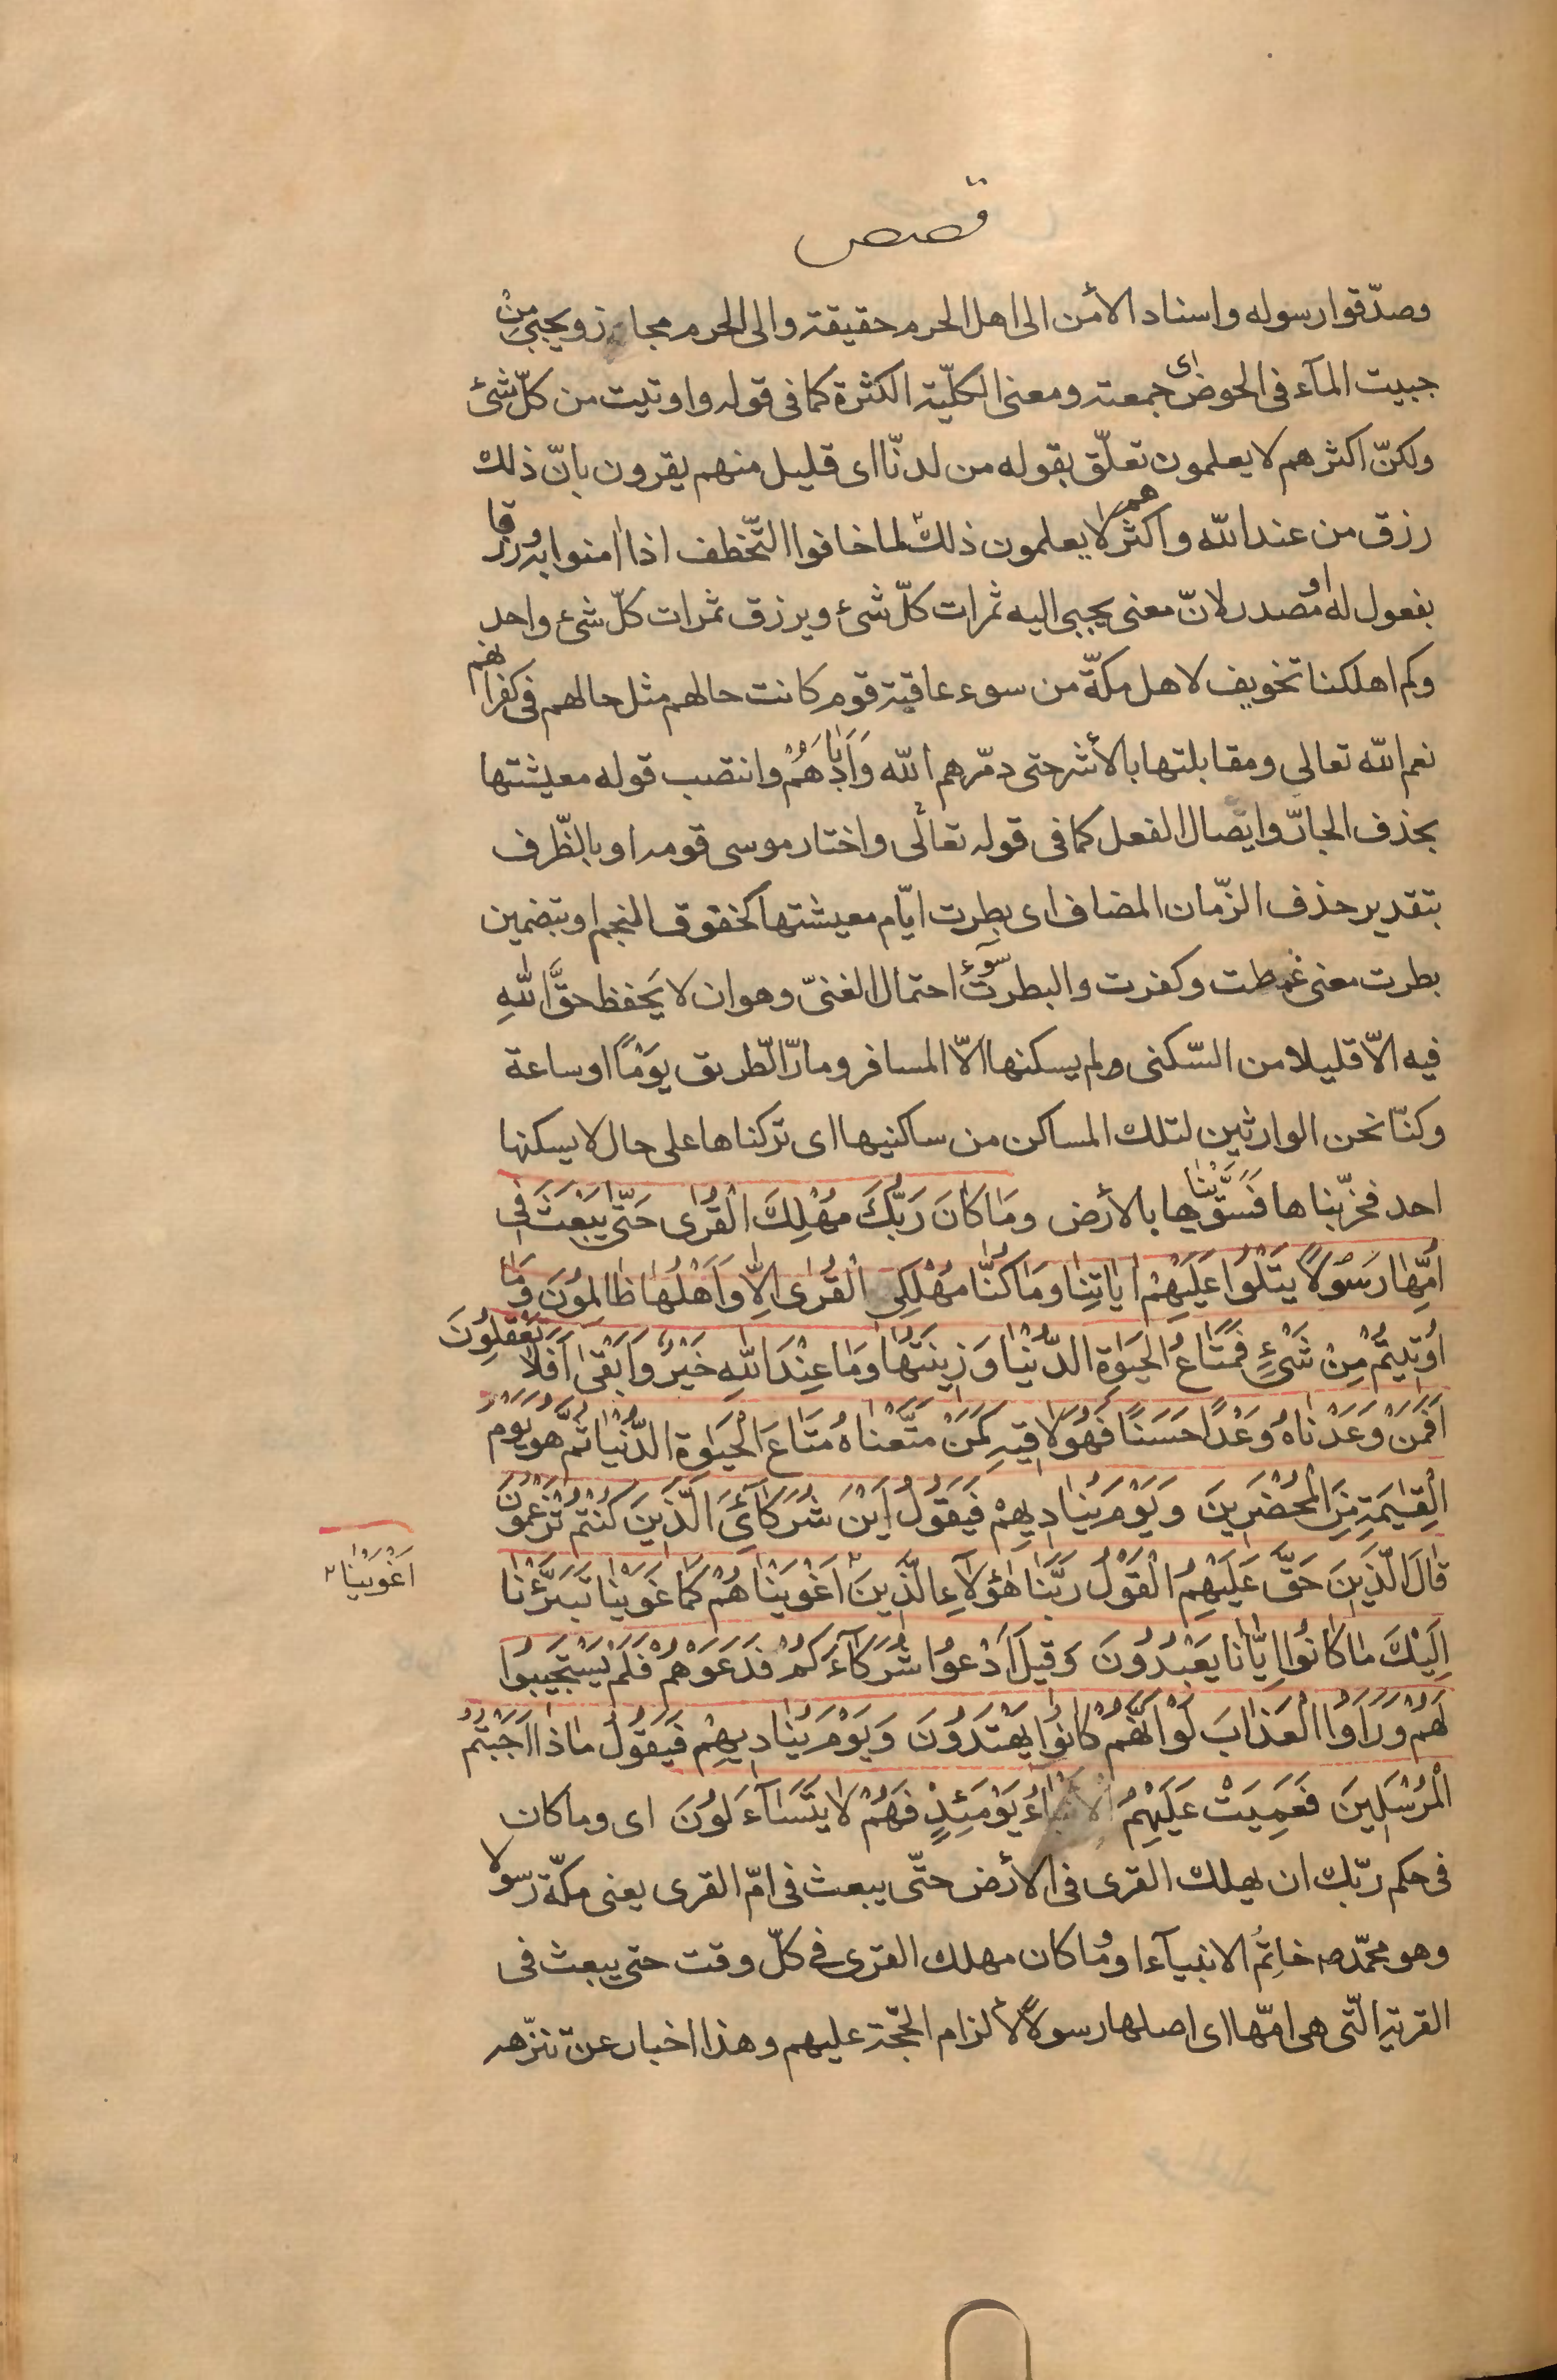 قصص
وصدّقوا رسوله واسناد الأمن الى اهل الحرم حقيقة والى الحرم مجاز ويجبى من
جبيت المآء فى الحوض اى جمعته ومعنى الكلّية الكثرة كما فى قوله واوتيت من كلّ شئ
ولكنّ اكثرهم لا يعلمون تعلّق بقوله من لدنّا اى قليل منهم يقرون بانّ ذلك
رزق من عند الله واكثرهم لا يعلمون ذلك لما خافوا التّخطف اذا امنوا به ورزقا
مفعول له او مصدر لانّ معنى يجبى اليه ثمرات كلّ شئ ويرزق ثمرات كلّ شئ واحد
وكم اهلكنا تخويف لاهل مكّة من سوء عاقبة قوم كانت حالهم مثل حالهم فى كفرانهم
نعم الله تعالى ومقابلتها بالأشر حتى دمّرهم الله وَاَبادَهُمْ وانتصب قوله معيشتها
بحذف الجارّ وايصال الفعل كما فى قوله تعالى واختار موسى قومه او بالظّرف
بتقدير حذف الزّمان المضاف اى بطرت ايّام معيشتها كخفوق النجم او بتضمين
بطرت معنى غمطت وكفرت والبطرت سوء احتمال الغنىّ وهو ان لا يَحفظ حقَّ اللهِ
فيه الاّ قليلا من السّكنى ولم يسكنها الاّ المسافر ومارّ الطريق يَوْمًا او ساعة
وكنّا نحن الوارثين لتلك المساكن من ساكنيها اى تركناها على حال لا يسكنها
احد فخرّبناها فَسَوَّيْناها بالأرض وَمَا كَانَ رَبُّكَ مُهْلِكَ الْقُرٰى حَتّٰى يَبْعَثَ فِى
اُمِّهٰا رَسُولاً يَتْلُوا عَلَيْهِمْ اٰيٰاتِنٰا وَمٰا كُنّٰا مُهْلِكِى الْقُرٰى اِلاّٰ وَاَهْلُهٰا ظٰالِمُونَ وَمٰا
اُوتيتُمْ مِنْ شَىْءٍ فَمَتٰاعُ الْحَيٰوةِ الدُّنْيٰا وَزينَتُهٰا وَمٰا عِنْدَ اللهِ خَيْرٌ وَاَبْقٰى اَفَلاٰ تَعْقِلُونَ
اَفَمَنْ وَعَدْنٰاهُ وَعْدًا حَسَنًا فَهُوَ لاٰقيهِ كَمَنْ مَتَّعْنٰاهُ مَتٰاعَ الْحَيٰوةِ الدُّنْيٰا ثُمَّ هُوَ يَوْمَ
الْقِيٰمَةِ مِنَ الْمُحْضَرينَ وَيَوْمَ يُنٰاديهِمْ فَيَقُولُ اَيْنَ شُرَكٰآئِىَ الَّذينَ كُنْتُمْ تَزْعُمُونَ
قٰالَ الَّذينَ حَقَّ عَلَيْهِمُ الْقَوْلُ رَبَّنٰا هٰؤُلاٰءِ الَّذينَ اَغْوَيْنٰاهُمْ كَمٰا غَوَيْنٰا تَبَرَّئْنٰا
اَغْوَيْنٰا
اِلَيْكَ مٰا كٰانُوا اِيّٰانٰا يَعْبُدُونَ وَقيلَ ادْعُوا شُرَكٰآءَكُمْ فَدَعَوْهُمْ فَلَمْ يَسْتَجيبُوا
لَهُمْ وَرَاَوُا الْعَذٰابَ لَوْ اَنَّهُمْ كٰانُوا يَهْتَدُونَ وَيَوْمَ يُنٰاديهِمْ فَيَقُولُ مٰاذٰا اَجَبْتُمُ
الْمُرْسَلينَ فَعَمِيَتْ عَلَيْهِمُ الْاَنْبٰاءُ يَوْمَئِذٍ فَهُمْ لاٰ يَتَسٰآءَلُونَ اى وما كان
فى حكم ربّك ان يهلك القرى فى الأرض حتّى يبعث فى امّ القرى يعنى مكّة رسولا
وهو محمّد ص خاتِمُ الانبيآء او وما كان مهلك القرى فى كلّ وقت حتى يبعث فى
القرية الّتى هى امّها اى اصلها رسولاً لألزام الحجّة عليهم وهذا اخبار عن تنزّهه